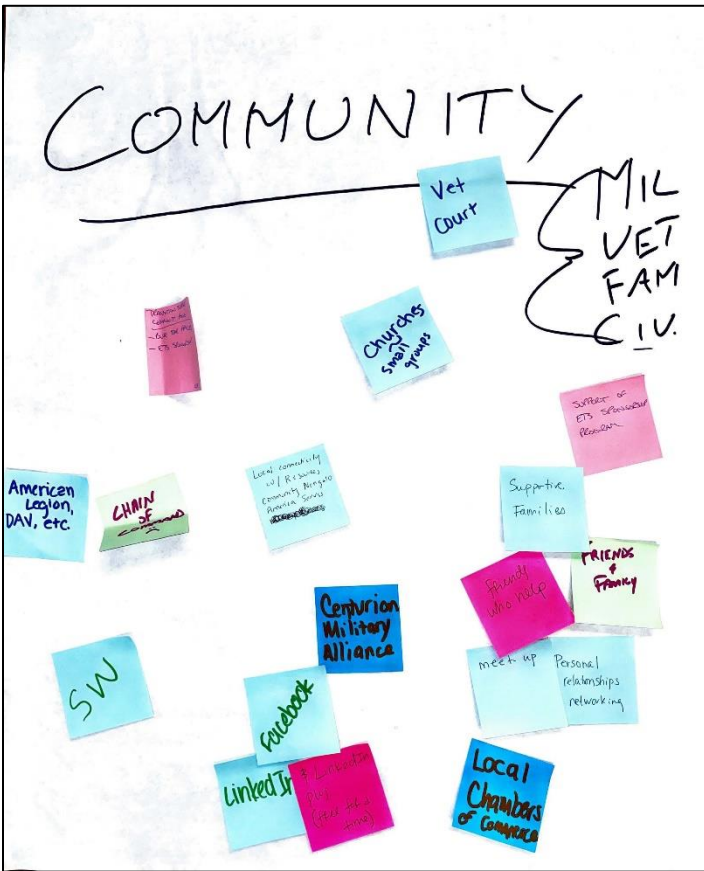 COMMUNITY
Vet
Court
MIL
VET
FAM
CIV.
Churches
small
groups
SUPPORT OF
ETS SPONSORSHIP
PROGRAM
American
Legion,
DAV, etc.
CHAIN
of
COMMAND
Local connectivity
w/ Resources,
Community
America Serves
Supportive
Families
Friends
who help
FRIENDS
&
FAMILY
Centurion
Military
Alliance
SW
meet up
Personal
relationships
networking
Facebook
LinkedIn
time)
Local
Chambers
of Commerce